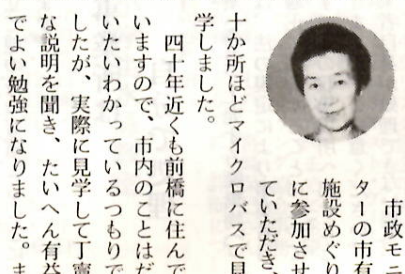 市政モニ
ターの市有
施設めぐり
に参加させ
ていただき、
十か所ほどマイクロバスで見
学しました。
四十年近くも前橋に住んで
いますので、市内のことはだ
いたいわかっているつもりで
したが、実際に見学して丁寧
な説明を聞き、たいへん有益
でよい勉強になりました。ま